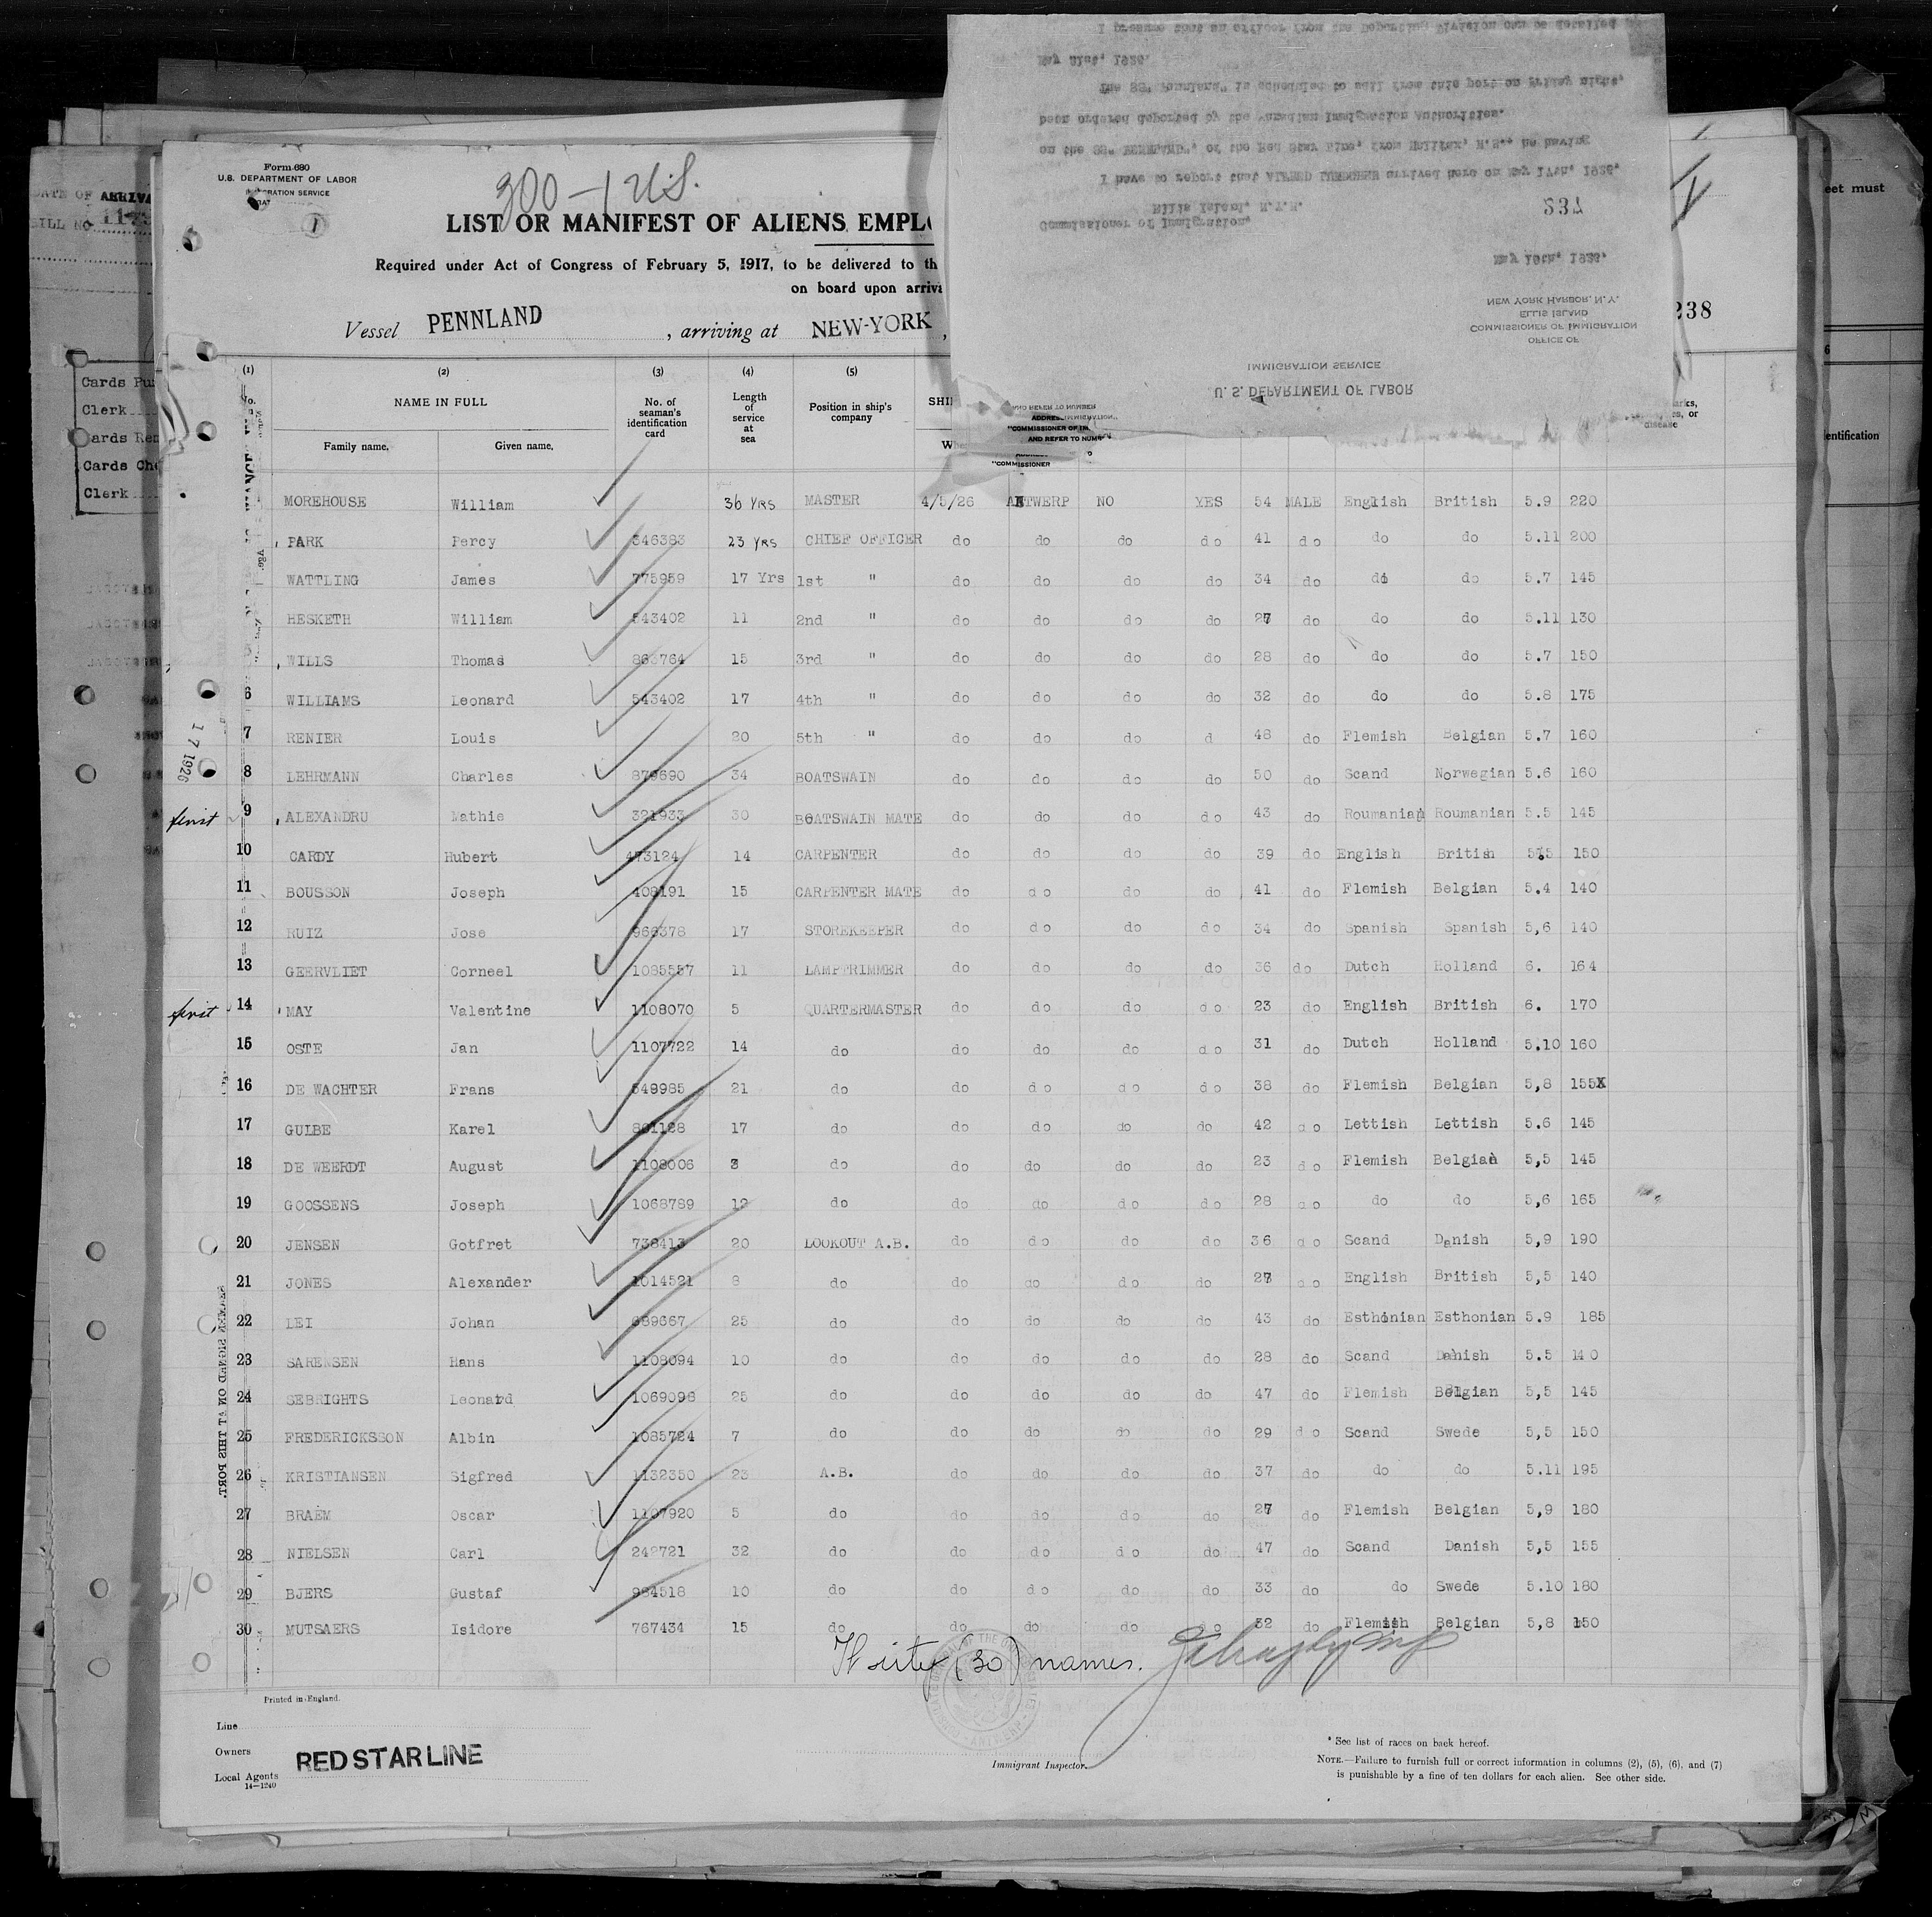 I presume that an officer from the Deporting Division can be detailed
May 21st, 1926.
The SS" Pennland" is scheduled to sail from this port on Friday night,
been ordered deported by the Canadian Immigration Authorities.
on the SS" PENNLAND", of the Red Star Line, from Halifax, N.S., he having
I have to report that ALFRED arrived here on May 17th, 1926,
Ellis Island, N.Y.H.
237
Commissioner of Immigration,
May 18th, 1926.
NEW YORK HARBOR, N.Y.
ELLIS ISLAND
COMMISSIONER OF IMMIGRATION
OFFICE OF
IMMIGRATION SERVICE
U. S. DEPARTMENT OF LABOR
AND REFER TO NUMBER
"COMMISSIONER OF IM
AND REFER TO NUMB
"COMMISSIONER
DATE OF ARRIVA
BILL NO
Cards Pu
Clerk
Cards Ren
Cards Che
Clerk
eet must
entification
238
Form 680
U.S. DEPARTMENT OF LABOR
IGRATION SERVICE
300-1 U.S.
1
LIST OR MANIFEST OF ALIENS EMPLO
Required under Act of Congress of February 5, 1917, to be delivered to th
on board upon arriva
Vessel PENNLAND , arriving at NEW-YORK ,
(1) (2) (3) (4) (5)
NAME IN FULL No. of seaman's identification card Length of service at sea Position in ship's company SHI
Family name. Given name. Whe
disease
MOREHOUSE William 36 YRS MASTER 4/5/26 ANTWERP NO YES 54 MALE English British 5.9 220
PARK Percy 346383 23 YRS CHIEF OFFICER do do do do 41 do do do 5.11 200
WATTLING James 775959 17 Yrs 1st " do do do do 34 do do do 5.7 145
HESKETH William 543402 11 2nd " do do do do 27 do do do 5.11 130
WILLS Thomas 863764 15 3rd " do do do do 28 do do do 5.7 150
6 WILLIAMS Leonard 543402 17 4th " do do do do 32 do do do 5.8 175
7 RENIER Louis 20 5th " do do do d 48 do Flemish Belgian 5.7 160
17 1926
8 LEHRMANN Charles 879690 34 BOATSWAIN do do do do 50 do Scand Norwegian 5.6 160
first 9 ALEXANDRU Mathie 321933 30 BOATSWAIN MATE do do do do 43 do Roumanian Roumanian 5.5 145
10 CARDY Hubert 473124 14 CARPENTER do do do do 39 do English British 5.5 150
11 BOUSSON Joseph 408191 15 CARPENTER MATE do do do do 41 do Flemish Belgian 5.4 140
12 RUIZ Jose 966378 17 STOREKEEPER do do do do 34 do Spanish Spanish 5,6 140
13 GEERVLIET Corneel 1085557 11 LAMPTRIMMER do do do do 36 do Dutch Holland 6. 164
first 14 MAY Valentine 1108070 5 QUARTERMASTER do do do do 23 do English British 6. 170
15 OSTE Jan 1107722 14 do do do do do 31 do Dutch Holland 5.10 160
16 DE WACHTER Frans 549985 21 do do do do do 38 do Flemish Belgian 5,8 155X
17 GULBE Karel 801128 17 do do do do do 42 do Lettish Lettish 5.6 145
18 DE WEERDT August 1108006 3 do do do do do 23 do Flemish Belgian 5,5 145
19 GOOSSENS Joseph 1068789 12 do do do do do 28 do do do 5,6 165
20 JENSEN Gotfret 738413 20 LOOKOUT A.B. do do do do 36 do Scand Danish 5,9 190
21 JONES Alexander 1014521 8 do do do do do 27 do English British 5,5 140
22 LEI Johan 689667 25 do do do do do 43 do Esthonian Esthonian 5.9 185
23 SARENSEN Hans 1108094 10 do do do do do 28 do Scand Danish 5.5 140
24 SEBRIGHTS Leonard 1069096 25 do do do do do 47 do Flemish Belgian 5,5 145
25 FREDERICKSSON Albin 1085724 7 do do do do do 29 do Scand Swede 5,5 150
26 KRISTIANSEN Sigfred 1132350 23 A.B. do do do do 37 do do do 5.11 195
27 BRAEM Oscar 1107920 5 do do do do do 27 do Flemish Belgian 5,9 180
28 NIELSEN Carl 242721 32 do do do do do 47 do Scand Danish 5,5 155
29 BJERS Gustaf 984518 10 do do do do do 33 do do Swede 5.10 180
30 MUTSAERS Isidore 767434 15 do do do do do 32 do Flemish Belgian 5,8 150
SEAMEN SIGNED ON AT THIS PORT.
(30) names.
Printed in England.
Line
Owners RED STAR LINE
Local Agents
14—1240
Immigrant Inspector.
* See list of races on back hereof.
NOTE.—Failure to furnish full or correct information in columns (2), (5), (6), and (7)
is punishable by a fine of ten dollars for each alien. See other side.